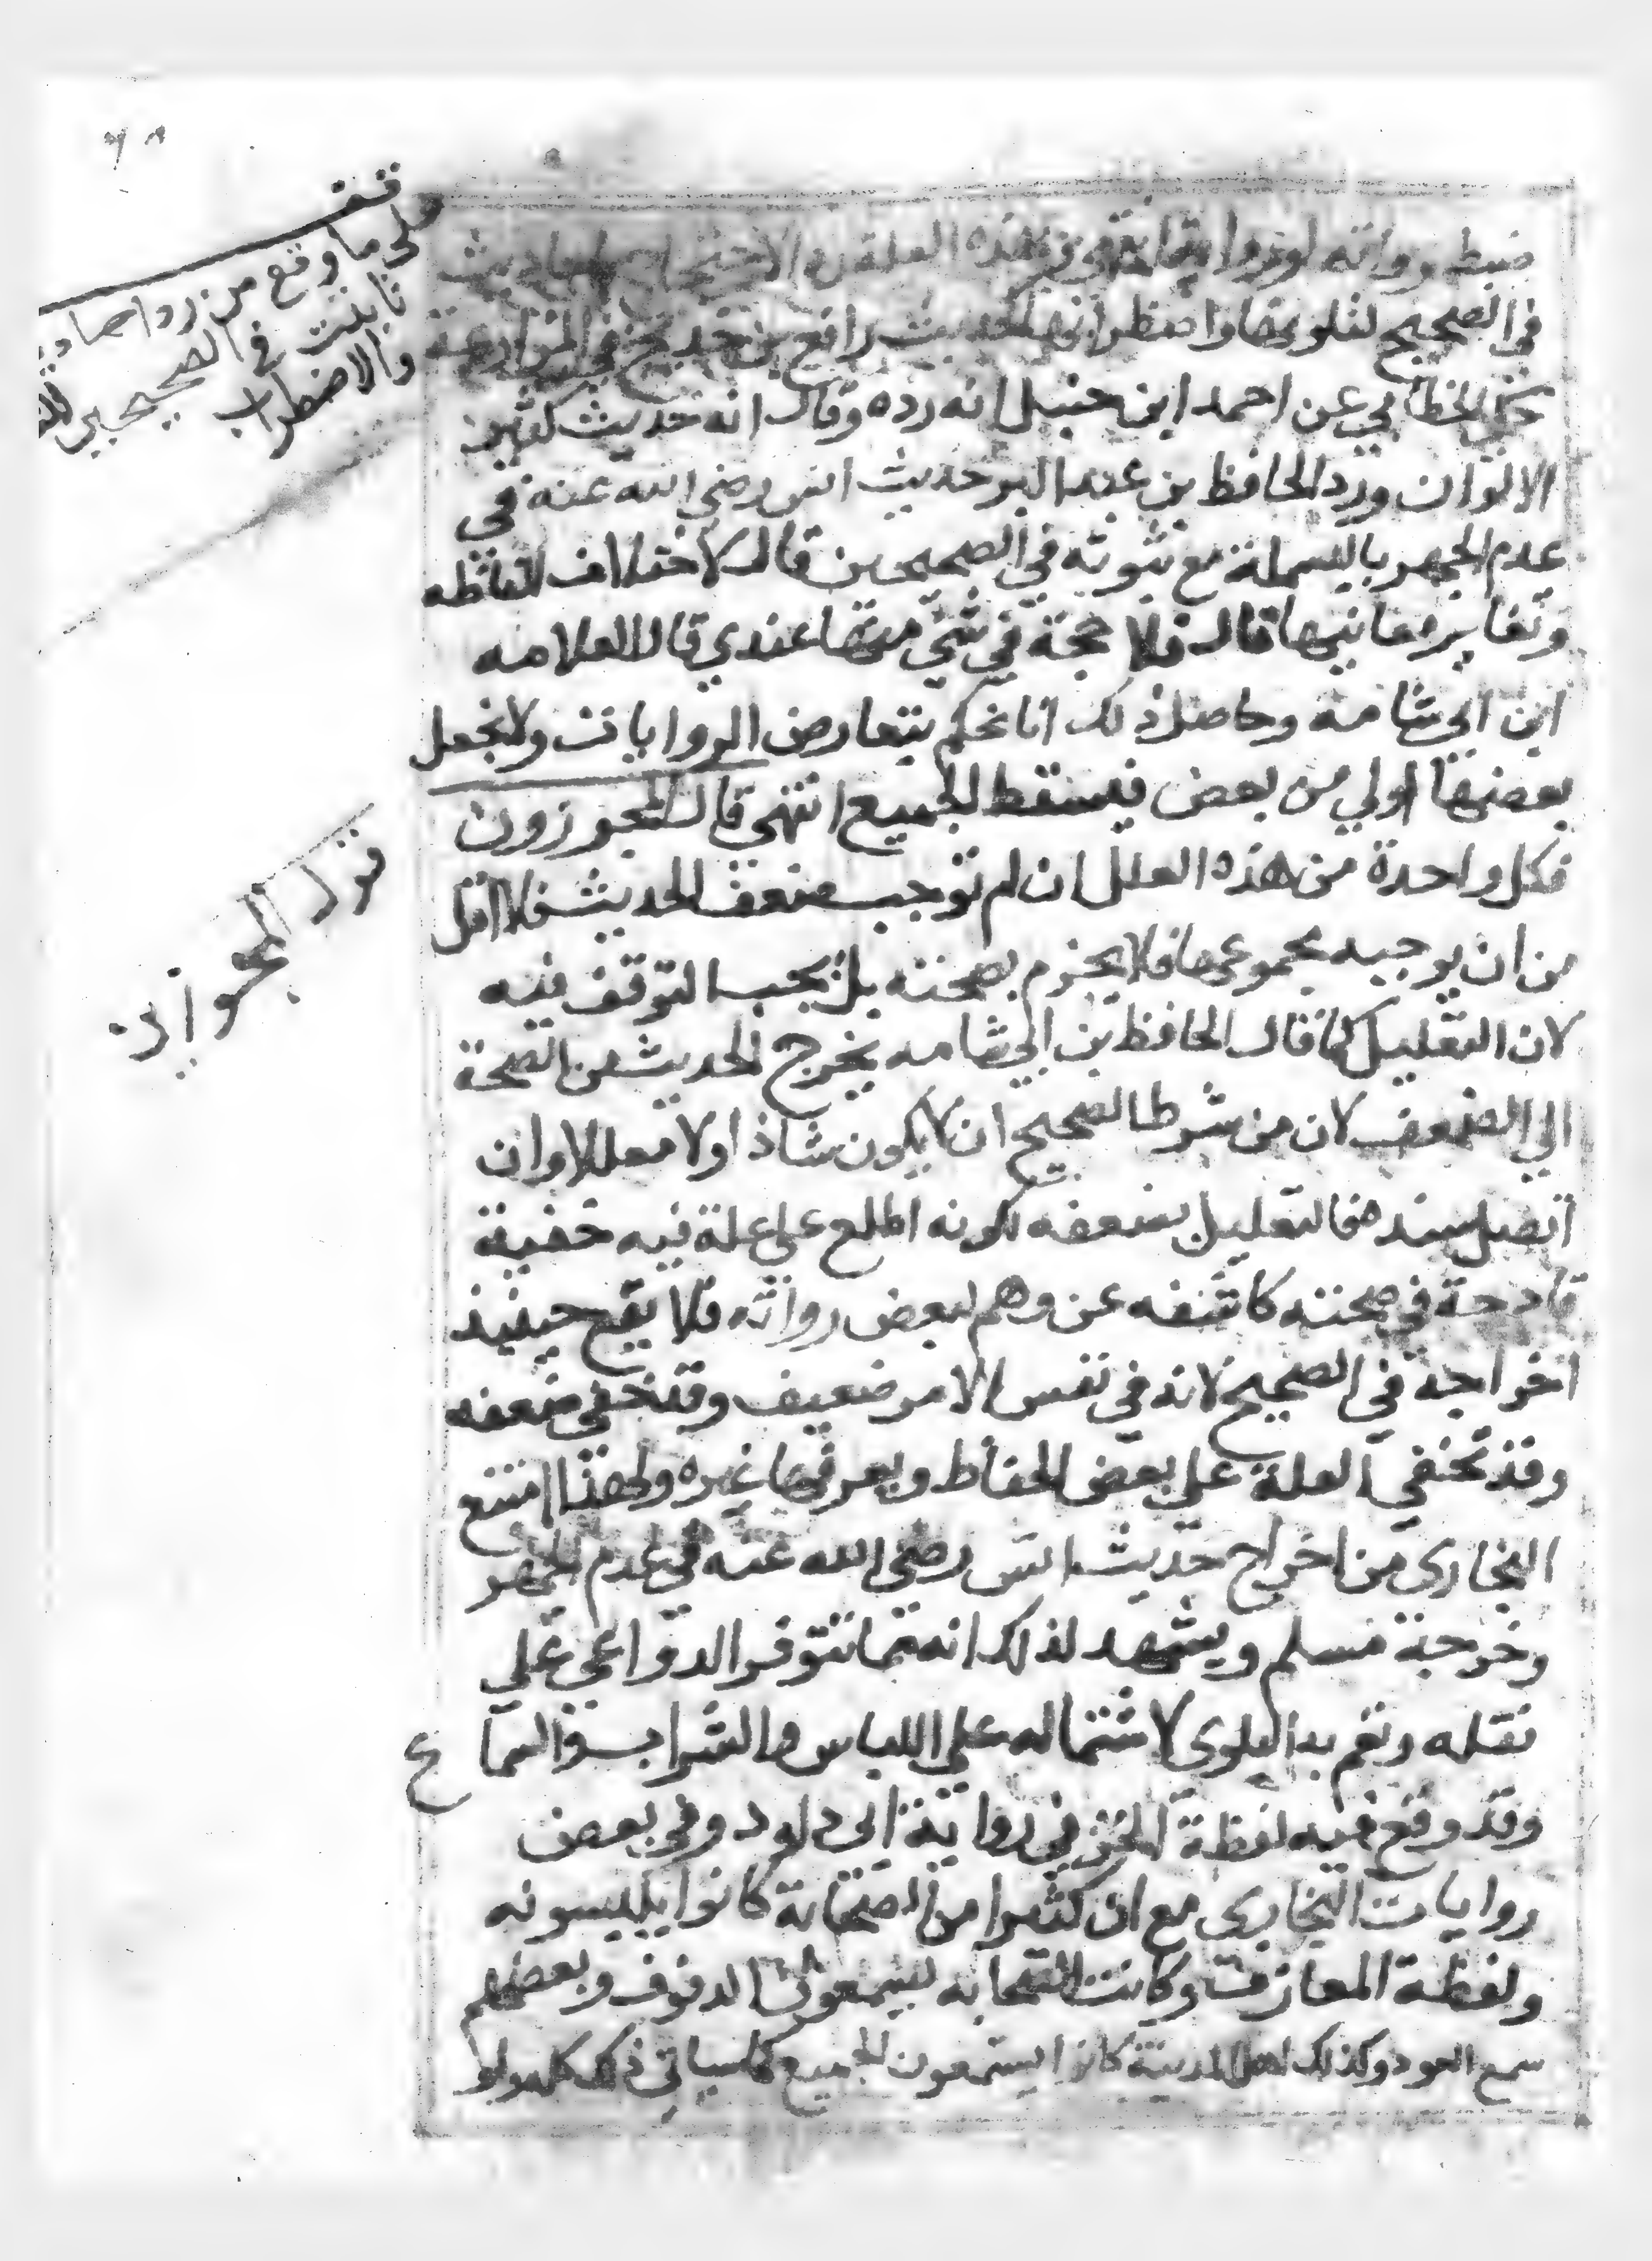 ضبط رواته له وردوا هذه العلة الاحاديث
في الصحيح لتلونها واضطرابها كحديث رافع بن خديج في المزارعة
حكي الخطابي عن احمد ابن حنبل انه رده وقال انه حديث كثير
الالوان ورد الحافظ بن عبد البر حديث انس رضي الله عنه في
عدم الجهر بالبسملة مع ثبوته في الصحيحين قال لاختلاف الفاظه
وتغاير معانيها قال فلا حجة في شي منها عندي قال العلامه
ابن ابي شامه وحاصل ذلك انا نحكم بتعارض الروايات ولا نجعل
بعضها اولي من بعض فيسقط الجميع انتهي قال المجوزون
فكل واحدة من هذه العلل ان لم توجب ضعف الحديث فلا اقل
من ان يوجبه مجموعها فلا يجزم بصحته بل يجب التوقف فيه
لان التعليل كما قال الحافظ بن ابي شامه يخرج الحديث من الصحة
الي الضعف لان من شرط الصحيح ان لا يكون شاذا ولا معللا وان
اتصل سنده فالتعليل يضعفه لكونه اطلع علي علة فيه خفية
قادحة في صحته كاشفه عن وهم لبعض رواته فلا يقع حينيذ
اخراجه في الصحيح لانه في نفس الامر ضعيف وقد خفي ضعفه
وقد تخفي العلة علي بعض الحفاظ ويعرفها غيره ولهذا امتنع
البخاري من اخراج حديث انس رضي الله عنه في عدم الجهر
وخرجه مسلم ويشهد لذلك انه مما تتوفر الدواعي علي
نقله وتعم به البلوي لاشتماله علي اللباس والشراب والسماع
وقد وقع فيه لفظة الخز في رواية ابي داود وفي بعض
روايات البخاري مع ان كثيرا من الصحابة كانوا يلبسونه
ولفظة المعازف وكانت الصحابه يسمعون الدفوف وبعضهم
سمع العود وكذلك اهل المدينة كانوا يستمعون الجميع كما سياتي ذلك كله ولو
قف
علي ما وقع من رد احاديث
ثابتت في الصحيحين
والاضطراب